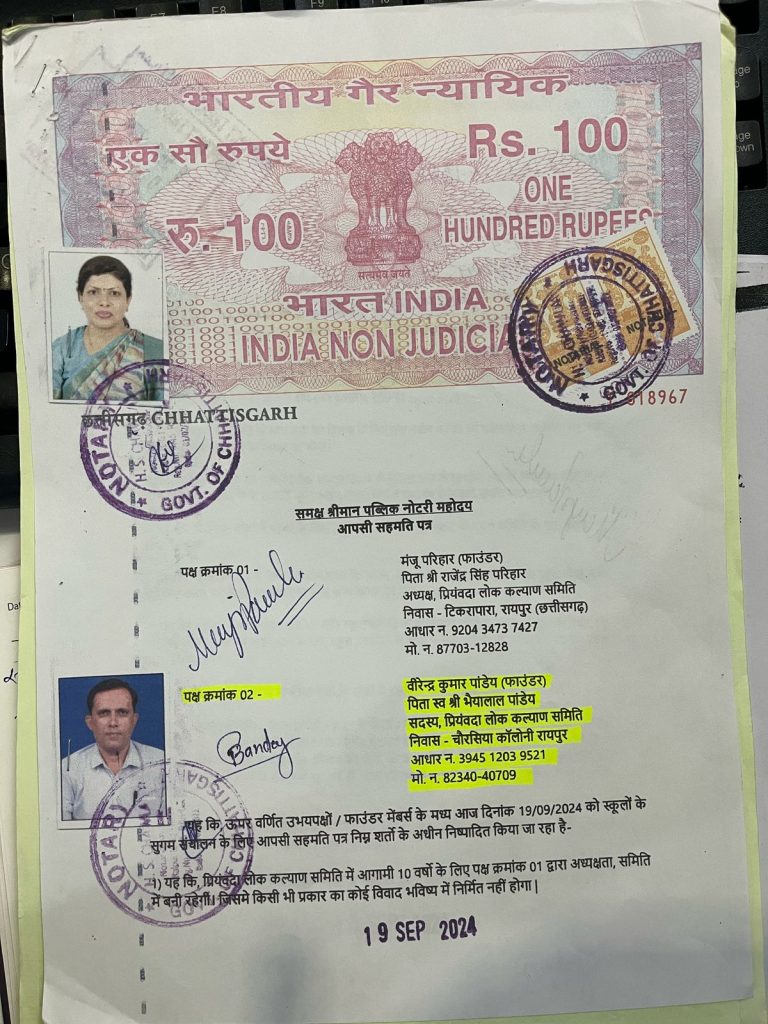 भारतीय गैर न्यायिक
एक सौ रुपये
Rs. 100
रु. 100
ONE
HUNDRED RUPEES
सत्यमेव जयते
भारत INDIA
INDIA NON JUDICIAL
NOTARY
GOVT. OF CHHATTISGARH
818967
छत्तीसगढ़ CHHATTISGARH
NOTARY
GOVT. OF CHHATTISGARH
समक्ष श्रीमान पब्लिक नोटरी महोदय
आपसी सहमति पत्र
पक्ष क्रमांक 01 -
मंजू परिहार (फाउंडर)
पिता श्री राजेंद्र सिंह परिहार
अध्यक्ष, प्रियंवदा लोक कल्याण समिति
निवास - टिकरापारा, रायपुर (छत्तीसगढ़)
आधार न. 9204 3473 7427
मो. न. 87703-12828
पक्ष क्रमांक 02 -
वीरेन्द्र कुमार पांडेय (फाउंडर)
पिता स्व श्री भैयालाल पांडेय
सदस्य, प्रियंवदा लोक कल्याण समिति
निवास - चौरसिया कॉलोनी रायपुर
आधार न. 3945 1203 9521
मो. न. 82340-40709
यह कि, ऊपर वर्णित उभयपक्षों / फाउंडर मेंबर्स के मध्य आज दिनांक 19/09/2024 को स्कूलों के
सुगम संचालन के लिए आपसी सहमति पत्र निम्न शर्तो के अधीन निष्पादित किया जा रहा है-
1) यह कि, प्रियंवदा लोक कल्याण समिति में आगामी 10 वर्षो के लिए पक्ष क्रमांक 01 द्वारा अध्यक्षता, समिति
में बनी रहेगी। जिसमे किसी भी प्रकार का कोई विवाद भविष्य में निर्मित नहीं होगा |
NOTARY
19 SEP 2024